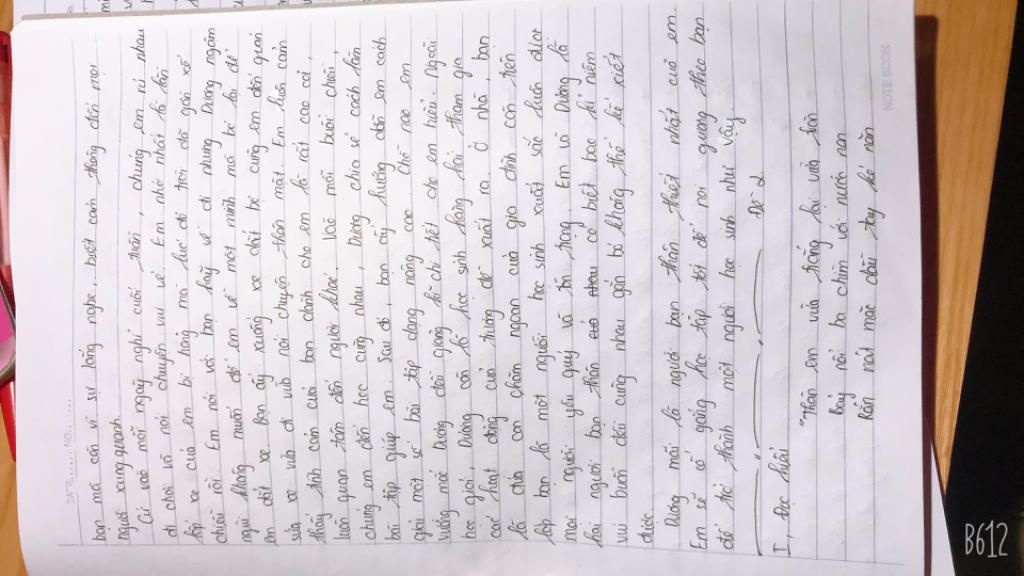 NOTE BOOK
bạn mà còn vì sự lắng nghe, biết cảm thông đối mọi
người xung quanh.
Cứ vào mỗi ngày nghỉ cuối tuần, chúng em rủ nhau
đi chơi và nói chuyện vui vẻ. Em nhớ nhất là lần
lốp xe của em bị hỏng mà lúc đó trời đã gần xế
chiều rồi. Em nói với bạn hãy về đi nhưng Dương ngần
ngừ không muốn để em về một mình mà bé lại để
em dắt xe. Bạn ấy xuống xe dắt bộ cùng em đến quán
sửa xe vừa đi vừa nói chuyện thân mật. Em luôn cảm
thấy tình cảm của bạn dành cho em là rất cao cả,
luôn quan tâm đến người khác. Vào mỗi buổi chiều,
chúng em đến học cùng nhau, Dương chia sẻ cách làm
bài tập giúp em. Sau đó, bạn ấy hướng dẫn em cách
giải một số bài tập dạng nâng cao. Chỗ nào em
vướng mắc Dương đều giảng kĩ chi tiết cho em hiểu. Ngoài
học giỏi, Dương còn là học sinh hăng hái tham gia
các hoạt động của trường đề xuất ra. Ở nhà, bạn
là đứa con ngoan của gia đình còn trên
lớp bạn là một người học sinh xuất sắc luôn được
mọi người yêu quý và tôn trọng. Em và Dương là
hai người bạn thân có biết bao kỉ niệm
vui buồn đều cùng nhau gắn bó không thể kể xiết
được
Dương mãi là người bạn thân thiết nhất của em.
Em sẽ cố gắng học tập tốt để noi gương theo bạn
để trở thành một người học sinh như vậy.
Đề 2
I, Đọc hiểu
"Thân em vừa trắng lại vừa tròn
Bảy nổi ba chìm với nước non
Rắn nát mặc dầu tay kẻ nặn
B612